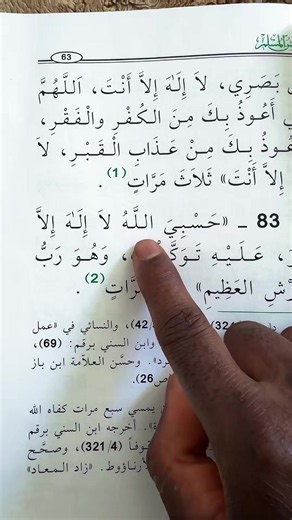 63 المسلم
بَصَرِي، لاَ إِلَهَ إِلاَّ أَنْتَ، اَللَّهُمَّ
أَعُوذُ بِكَ مِنَ الْكُفْرِ والْفَقْرِ،
عُوذُ بِكَ مِنْ عَذَابِ الْقَبْرِ، لاَ
إِلاَّ أَنْتَ» ثَلاَثَ مَرَّاتٍ (1).
83 ـ «حَسْبِيَ اللَّهُ لاَ إِلَهَ إِلاَّ
عَلَيْهِ وَهُوَ رَبُّ
الْعَظِيمِ» (2).
42/)، والنسائي في «عمل
وابن السني برقم: (69)،
وحسَّن العلاّمة ابن باز
26).
يمسي سبع مرات كفاه الله
أخرجه ابن السني برقم
(321/4)، وصحَّح
«زاد المعاد»